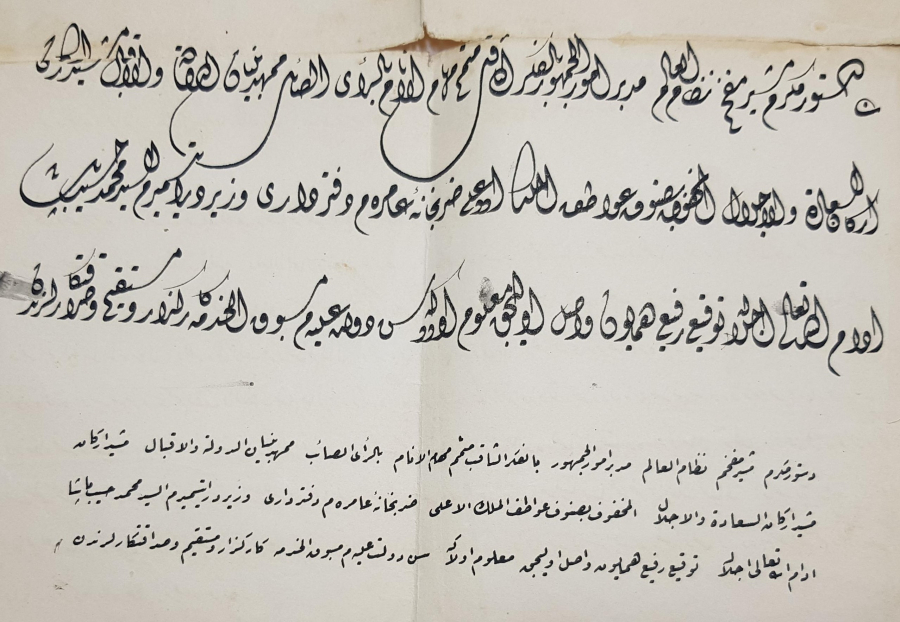 دستور مكرم مشير مفخم نظام العالم مدبر امور الجمهور بالفكر الثاقب متمم مهام الانام بالرأى الصائب ممهد بنيان الدولة والاقبال مشيد اركان
اركان السعادة والاجلال المحفوف بصنوف عواطف الملك الاعلى ضربخانه عامره م دفتردارى وزير درايتسميرم السيد محمد حبيب پاشا
ادام الله تعالى اجلاله توقيع رفيع همايون واصل اوليجق معلوم اولاكه سن دولت عليه م مسبوق الخدمه كاركذار ومستقيم وصداقتكارلرندن
دستور مكرم مشير مفخم نظام العالم مدبر امور الجمهور بالفكر الثاقب متمم مهام الانام بالرأى الصائب ممهد بنيان الدولة والاقبال مشيد اركان
مشيد اركان السعادة والاجلال المحفوف بصنوف عواطف الملك الاعلى ضربخانه عامره م دفتردارى وزير درايتسميرم السيد محمد حبيب پاشا
ادام الله تعالى اجلاله توقيع رفيع همايون واصل اوليجق معلوم اولاكه سن دولت عليه م مسبوق الخدمه كاركذار ومستقيم وصداقتكارلرندن